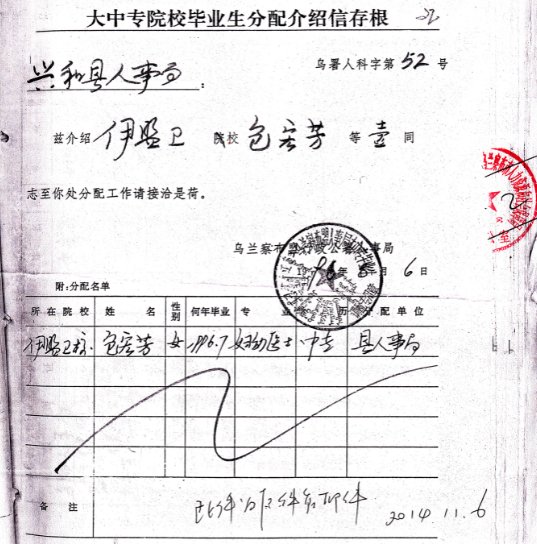 大中专院校毕业生分配介绍信存根
兴和县人事局：
乌署人科字第52号
兹介绍 伊盟卫 院校 包宏芳 等 壹 同
志至你处分配工作请接洽是荷。
乌兰察布 事局
月6日
附：分配名单
所在院校 姓名 性别 何年毕业 专业 历 分配单位
伊盟卫校 包宏芳 女 1996.7 妇幼医士 中专 县人事局
备注
此件与原件相符 2014.11.6